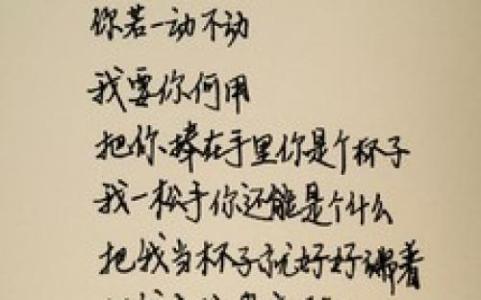 你若一动不动
我要你何用
把你捧在手里你是个杯子
我一松手你还能是个什么
把我当杯子就好好端着